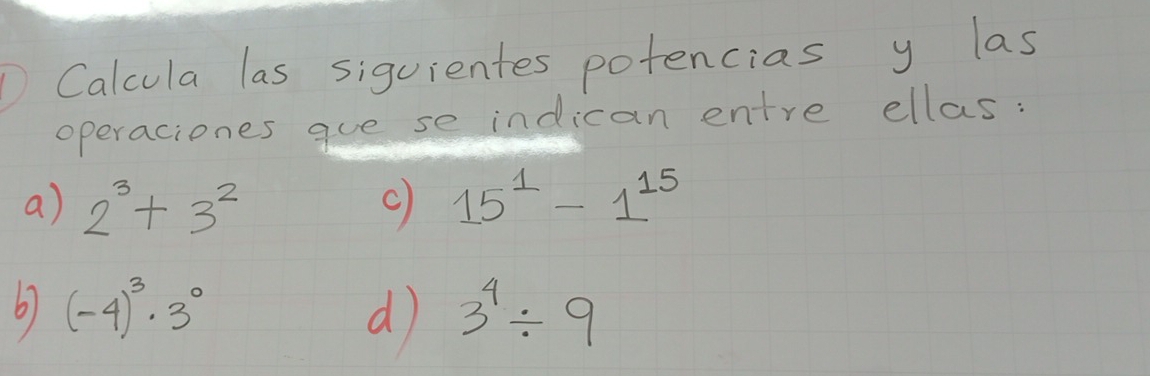 1) Calcula las siguientes potencias y las
operaciones que se indican entre ellas:
a) 2³ + 3² c) 15¹ - 1¹⁵
b) (-4)³ · 3⁰ d) 3⁴ ÷ 9